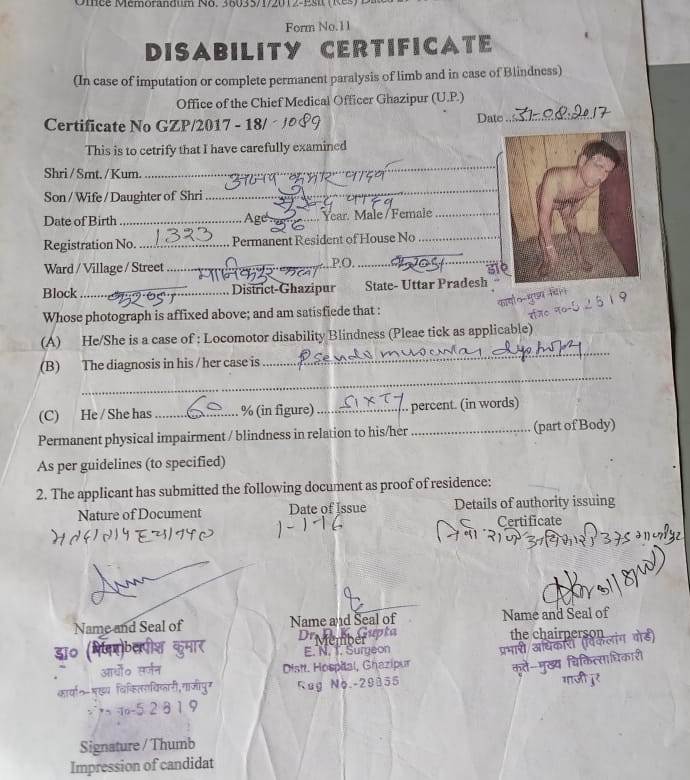 Office Memorandum No. 36035/1/2012-Estt (Res)
Form No.11
DISABILITY CERTIFICATE
(In case of imputation or complete permanent paralysis of limb and in case of Blindness)
Office of the Chief Medical Officer Ghazipur (U.P.)
Certificate No GZP/2017 - 18/ - 1089 Date 31-08-2017
This is to cetrify that I have carefully examined
Shri / Smt. / Kum. कुमार यादव
Son / Wife / Daughter of Shri यादव
Date of Birth Age 26 Year. Male / Female
Registration No. 1323 Permanent Resident of House No
Ward / Village / Street मानिकपुर कला P.O. करण्डा
Block करण्डा District-Ghazipur State- Uttar Pradesh
डा०
Whose photograph is affixed above; and am satisfiede that :
(A) He/She is a case of : Locomotor disability Blindness (Pleae tick as applicable)
(B) The diagnosis in his / her case is Psendo muscular dystrophy
(C) He / She has 60 % (in figure) SIXTY percent. (in words)
Permanent physical impairment / blindness in relation to his/her (part of Body)
As per guidelines (to specified)
2. The applicant has submitted the following document as proof of residence:
Nature of Document Date of Issue Details of authority issuing
Certificate
मतदाता पहचान पत्र 1-1-16
Name and Seal of Name and Seal of Name and Seal of
Member the chairperson
डा० कुमार Dr. D. K. Gupta प्रभारी अधिकारी (विकलांग बोर्ड)
आर्थो सर्जन E. N. T. Surgeon कृते-मुख्य चिकित्साधिकारी
कार्या०-मुख्य चिकित्साधिकारी, गाजीपुर Distt. Hospital, Ghazipur गाजीपुर
Reg No.-29855
Signature / Thumb
Impression of candidat